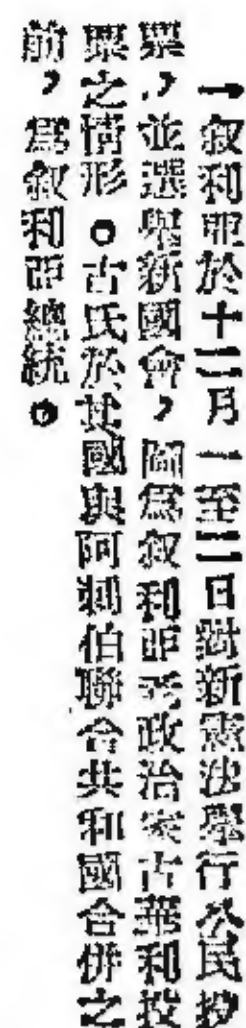 一敘利亞於十二月一至二日對新憲法舉行公民投
票,並選舉新國會,圖為敘利亞政治家古華利投
票之情形。古氏於其國與阿剌伯聯合共和國合併之
前,為敘利亞總統。